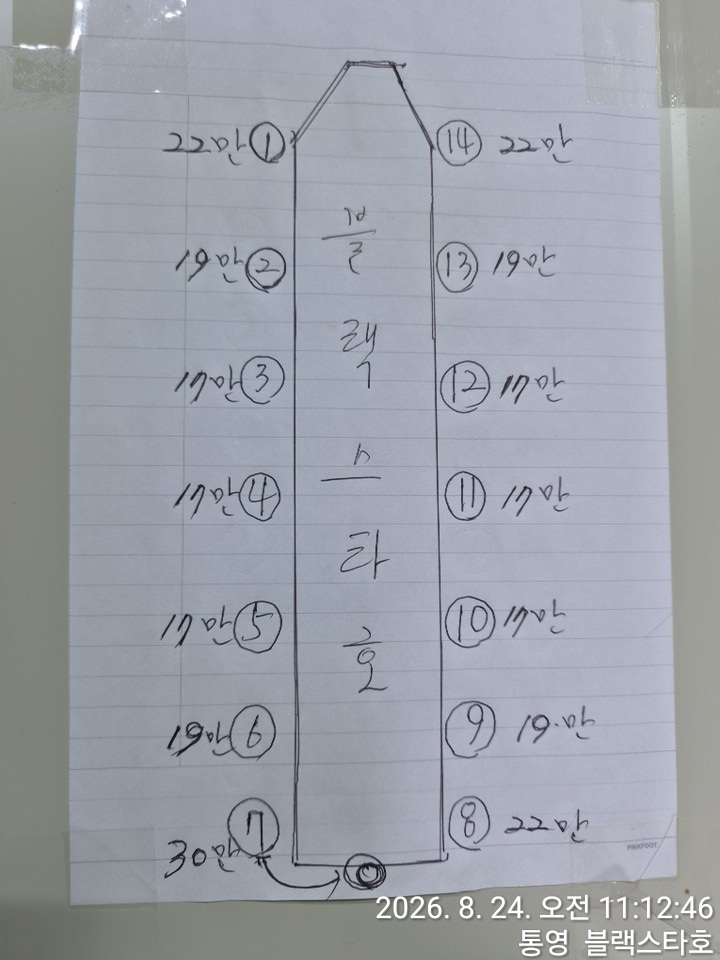 22만 ① ⑭ 22만
블
19만 ② ⑬ 19만
랙
17만 ③ ⑫ 17만
스
17만 ④ ⑪ 17만
타
17만 ⑤ ⑩ 17만
호
19만 ⑥ ⑨ 19만
30만 ⑦ ⑧ 22만
PINKFOOT
2026. 8. 24. 오전 11:12:46
통영 블랙스타호